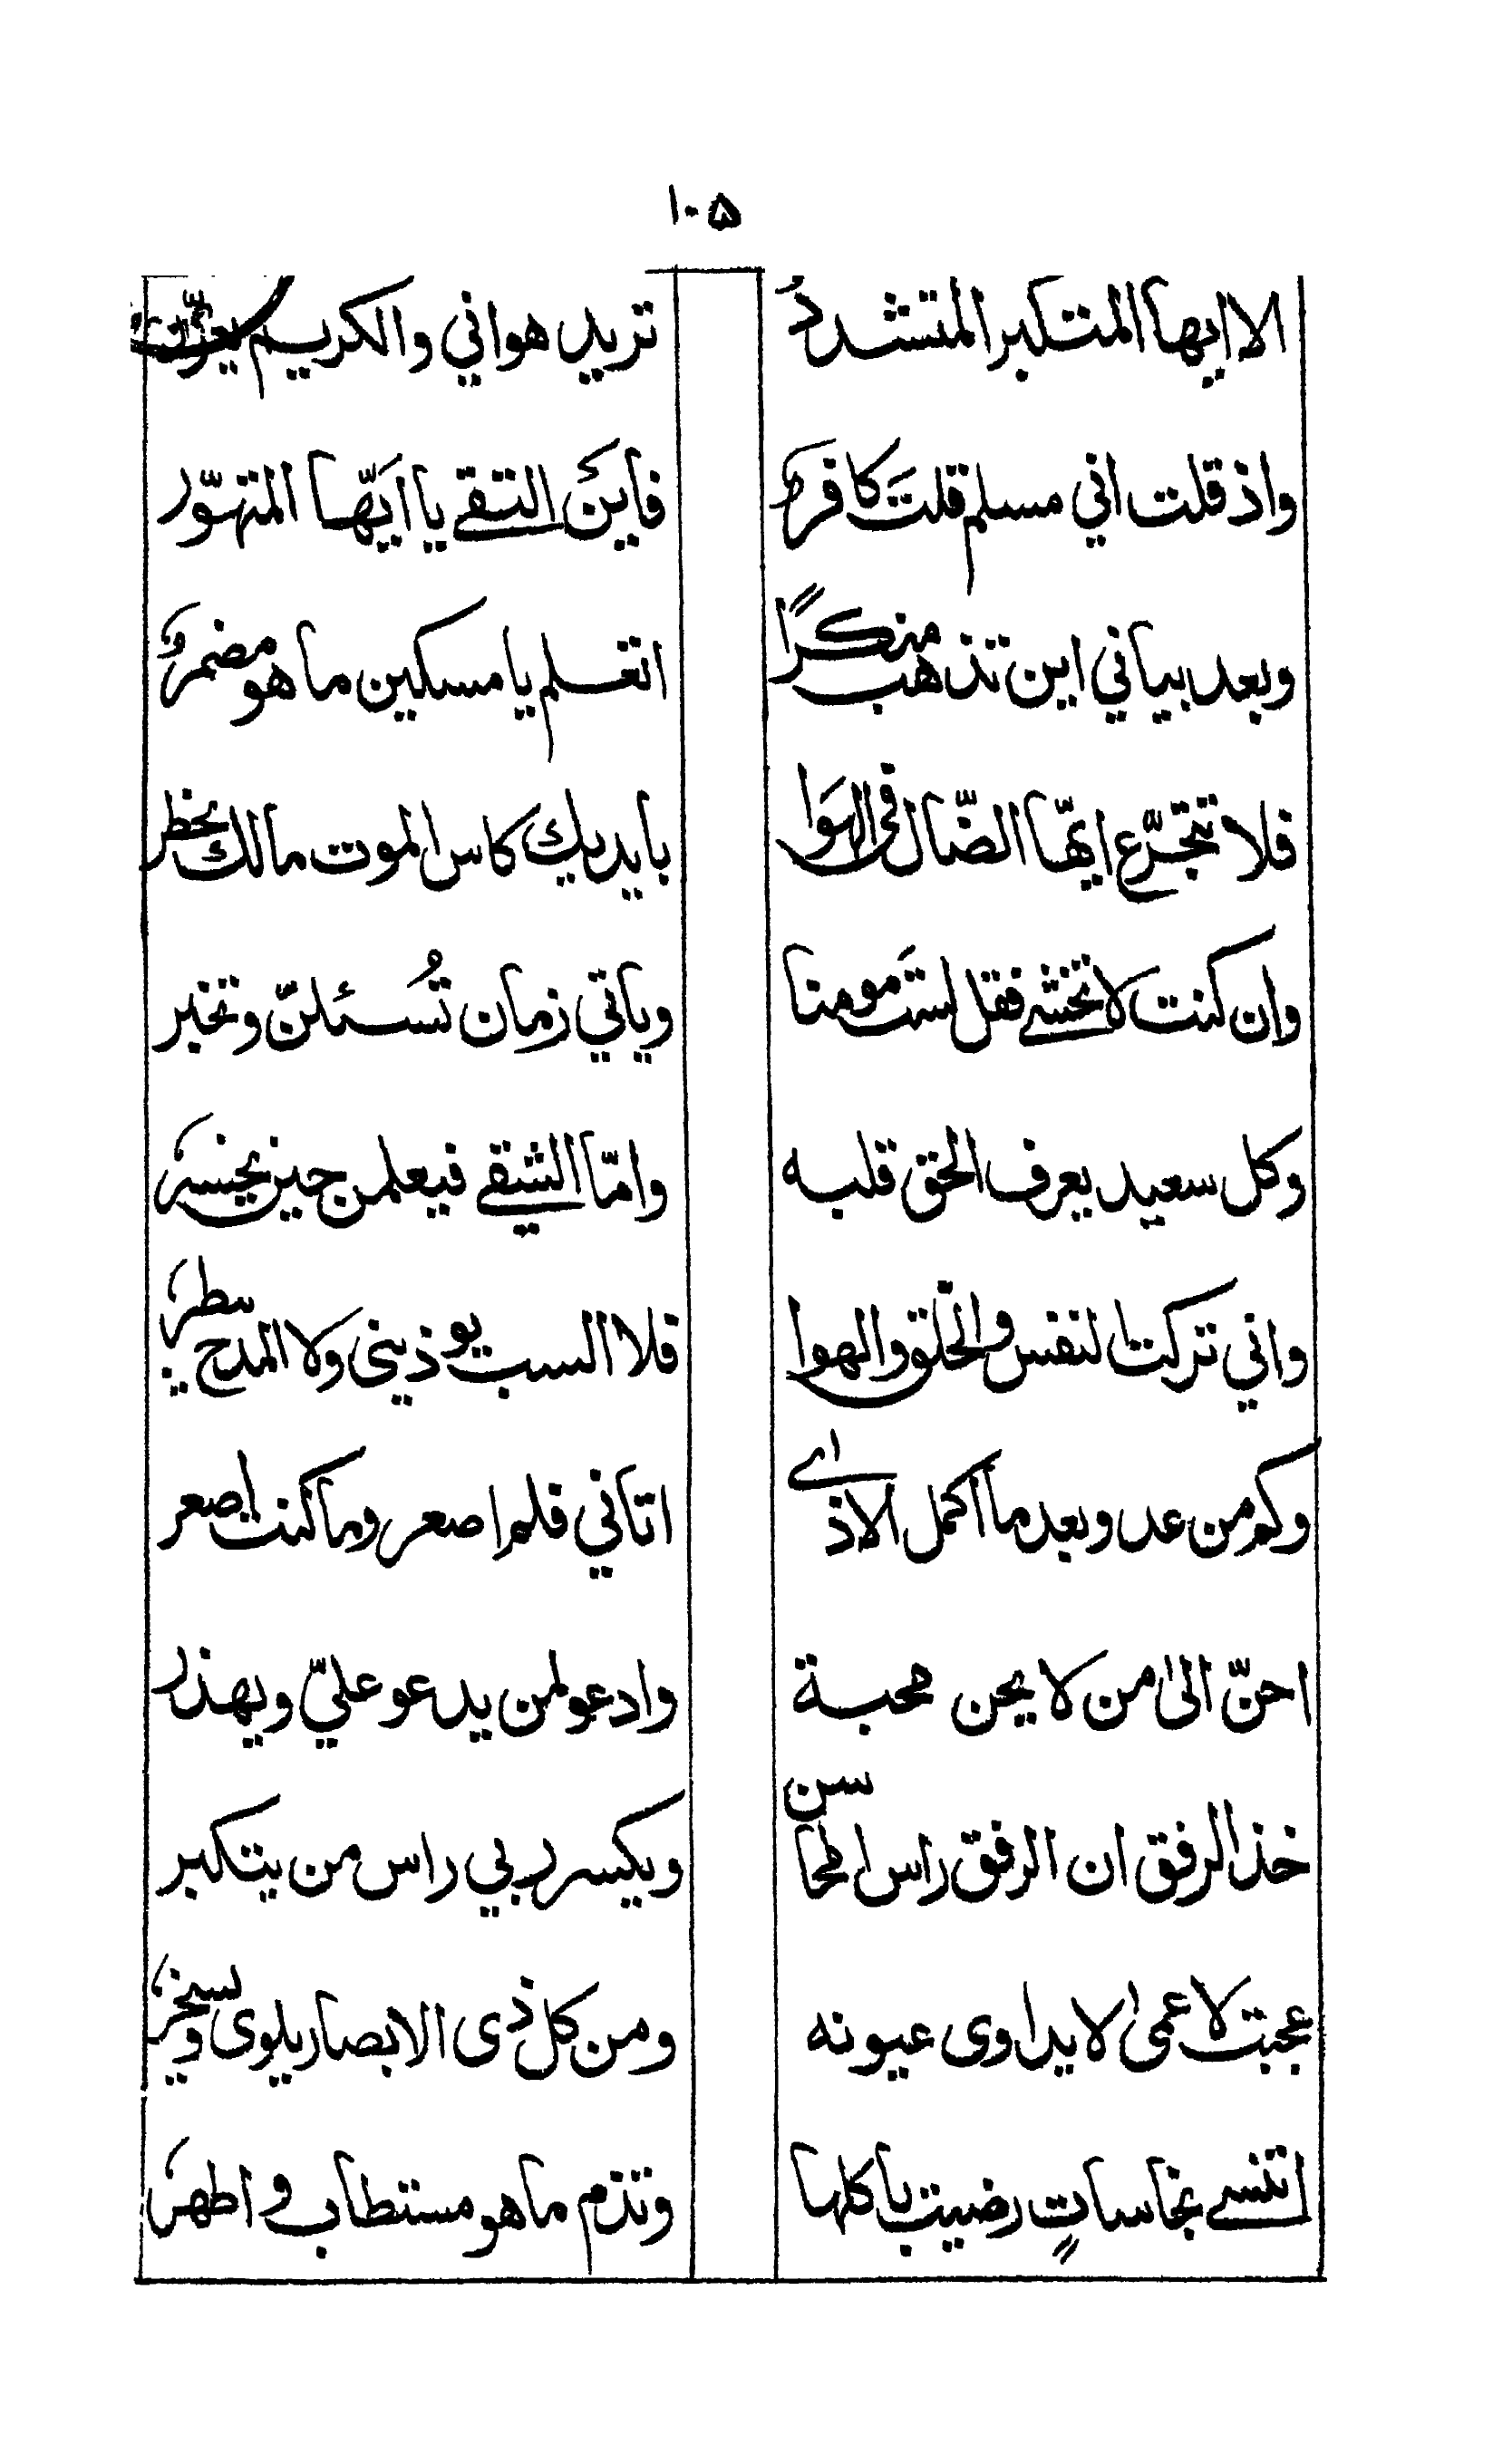 ۱۰۵
الا ايها المتكبر المتشددُ تريد هواني والكريم يعزّر
واذ قلت اني مسلم قلتَ كافر فاينَ التقے يا ايّها المتهوّر
وبعد بياني اين تذهب منكرًا اتعلم يا مسكين ما هو مضمرُ
فلا تتجرّع ايّها الضّال في الهَوا بايديك كاس الموت مالك تخطر
وان كنت لا تخشے فقل لستَ مومنا وياتي زمان تُسئلنّ وتخبر
وكل سعيد يعرف الحق قلبه وامّا الشقے فيعلمن حين يخسر
واني تركت النفس والخلق والهوا فلا السب يوذيني ولا المدح يبطر
وكم من عدو بعد ما اكمل الاذاے اتاني فلم اصعر وما كنت اصعر
احنّ الىٰ من لا يحن محبة وادعو لمن يدعو عليّ ويهذر
خذ الرفق ان الرفق راس المحاسن ويكسر ربي راس من يتكبر
عجبت لاعمىٰ لا يداوى عيونه ومن كل ذى الابصار يلوى ويسخر
اتنسے نجاساتٍ رضيت باكلها وتذم ما هو مستطاب واطهر